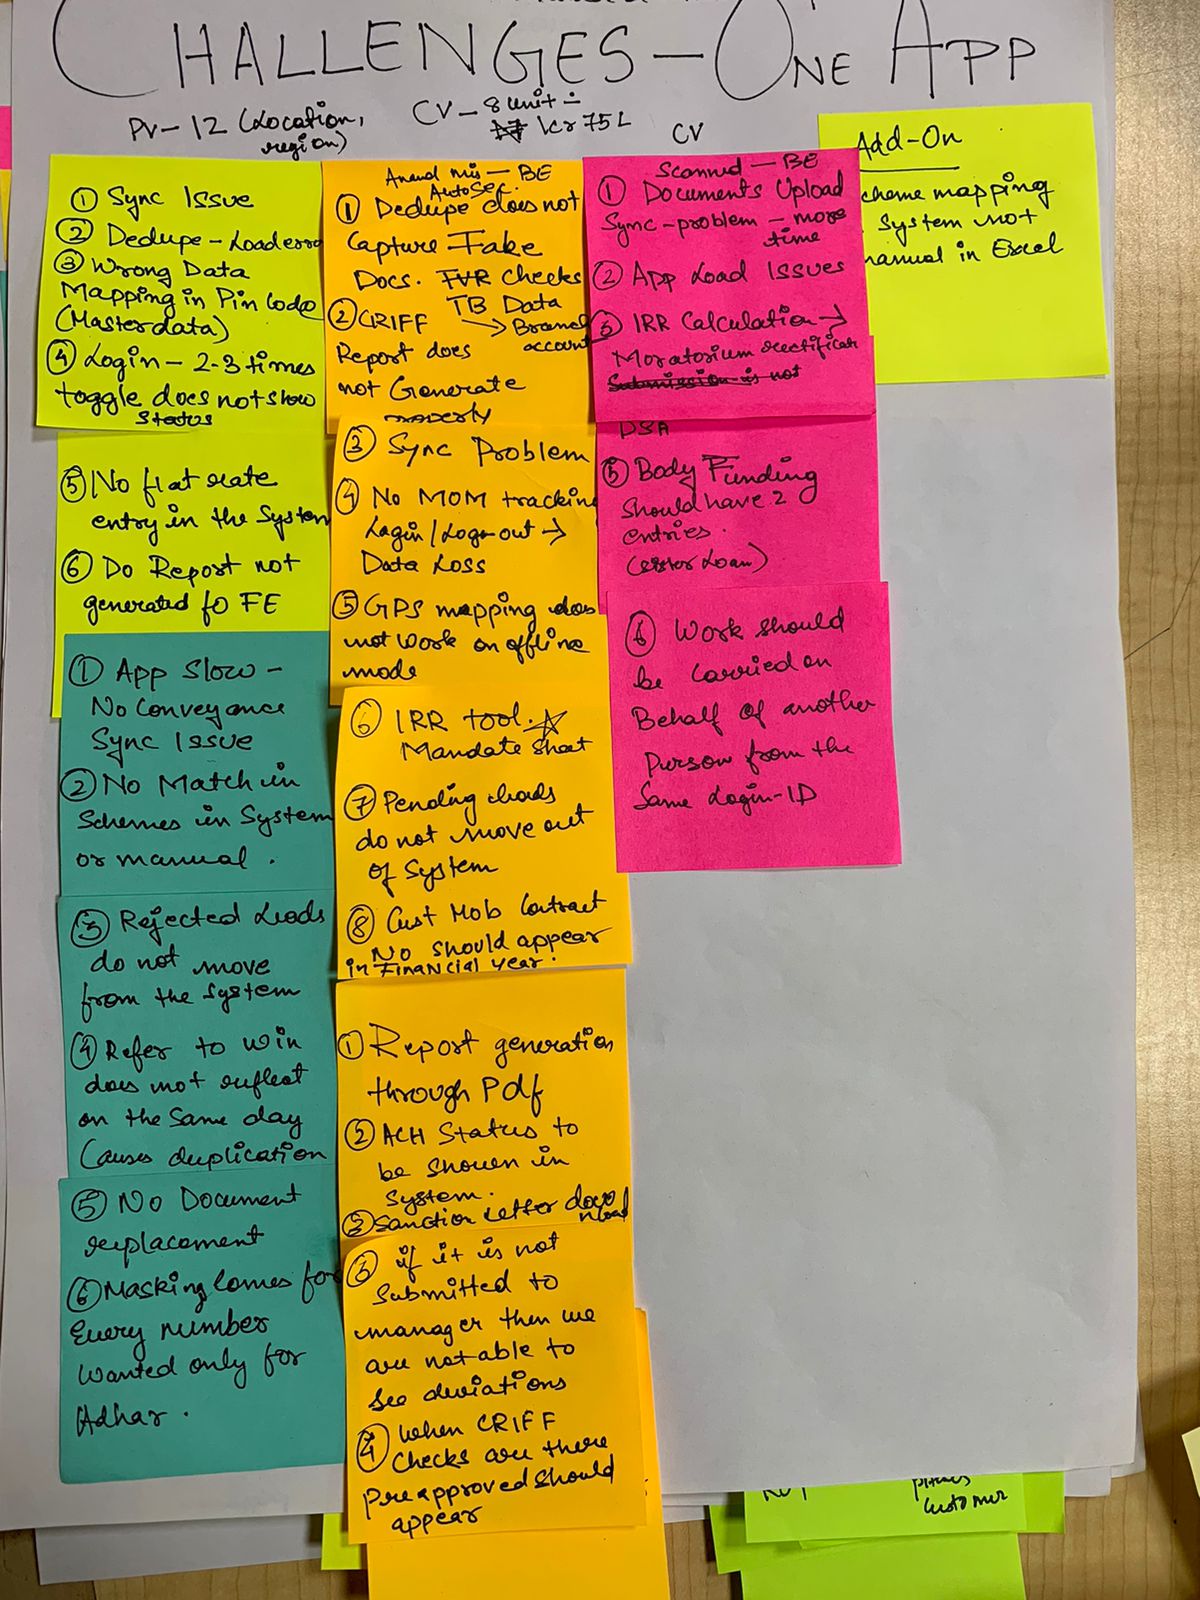 CHALLENGES - ONE APP
PV - 12 (Location,
region)
CV - 8 unit -
1cr 75L
CV
① Sync Issue
② Dedupe - Load erro
③ Wrong Data
Mapping in Pin Code
(Master data)
④ Login - 2-3 times
toggle does not show
Status
⑤ No flat rate
entry in the System
⑥ Do Report not
generated fo FE
① App Slow -
No Conveyance
Sync Issue
② No Match in
Schemes in System
or manual.
③ Rejected Leads
do not move
from the System
④ Refer to win
does not reflect
on the Same day
Causes duplication
⑤ No Document
replacement
⑥ Masking Comes for
Every number
Wanted only for
Adhar.
Anand - BE
① Dedupe does not
Capture Fake
Docs. FVR Checks
TB Data
② CRIFF → Branch
account
Report does
not Generate
properly
③ Sync Problem
④ No MOM tracking
Login / Logout →
Data Loss
⑤ GPS mapping does
not work on offline
mode
⑥ IRR tool.
Mandate Sheet
⑦ Pending leads
do not move out
of System
⑧ Cust Mob Contract
No should appear
in Financial year.
① Report generation
through Pdf
② ACH Status to
be shown in
System.
③ Sanction Letter download
③ if it is not
Submitted to
manager then we
are not able to
See deviations
④ When CRIFF
Checks are there
Pre approved should
appear
Scanned - BE
① Documents Upload
Sync-problem - more
time
② App Load Issues
③ IRR Calculation →
Moratorium
Submission is not
DSA
⑤ Body Funding
Should have 2
entries.
(Sister Loan)
⑥ Work should
be Carried on
Behalf of another
Person from the
Same Login-ID
Add-On
cheme mapping
System not
manual in Excel
Customer